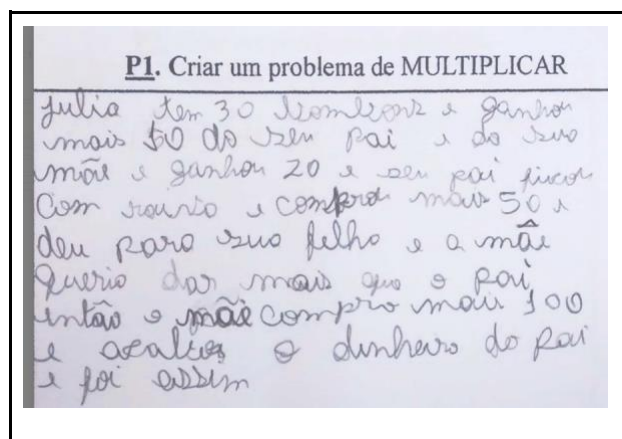 P1. Criar um problema de MULTIPLICAR
Julia tem 30 bombons e ganhou
mais 50 do seu pai e da sua
mãe e ganhou 20 e seu pai ficou
Com e comprou mais 50 e
deu para sua filha e a mãe
queria dar mais que o pai
então a mãe compro mais 100
e o dinheiro do pai
e foi assim